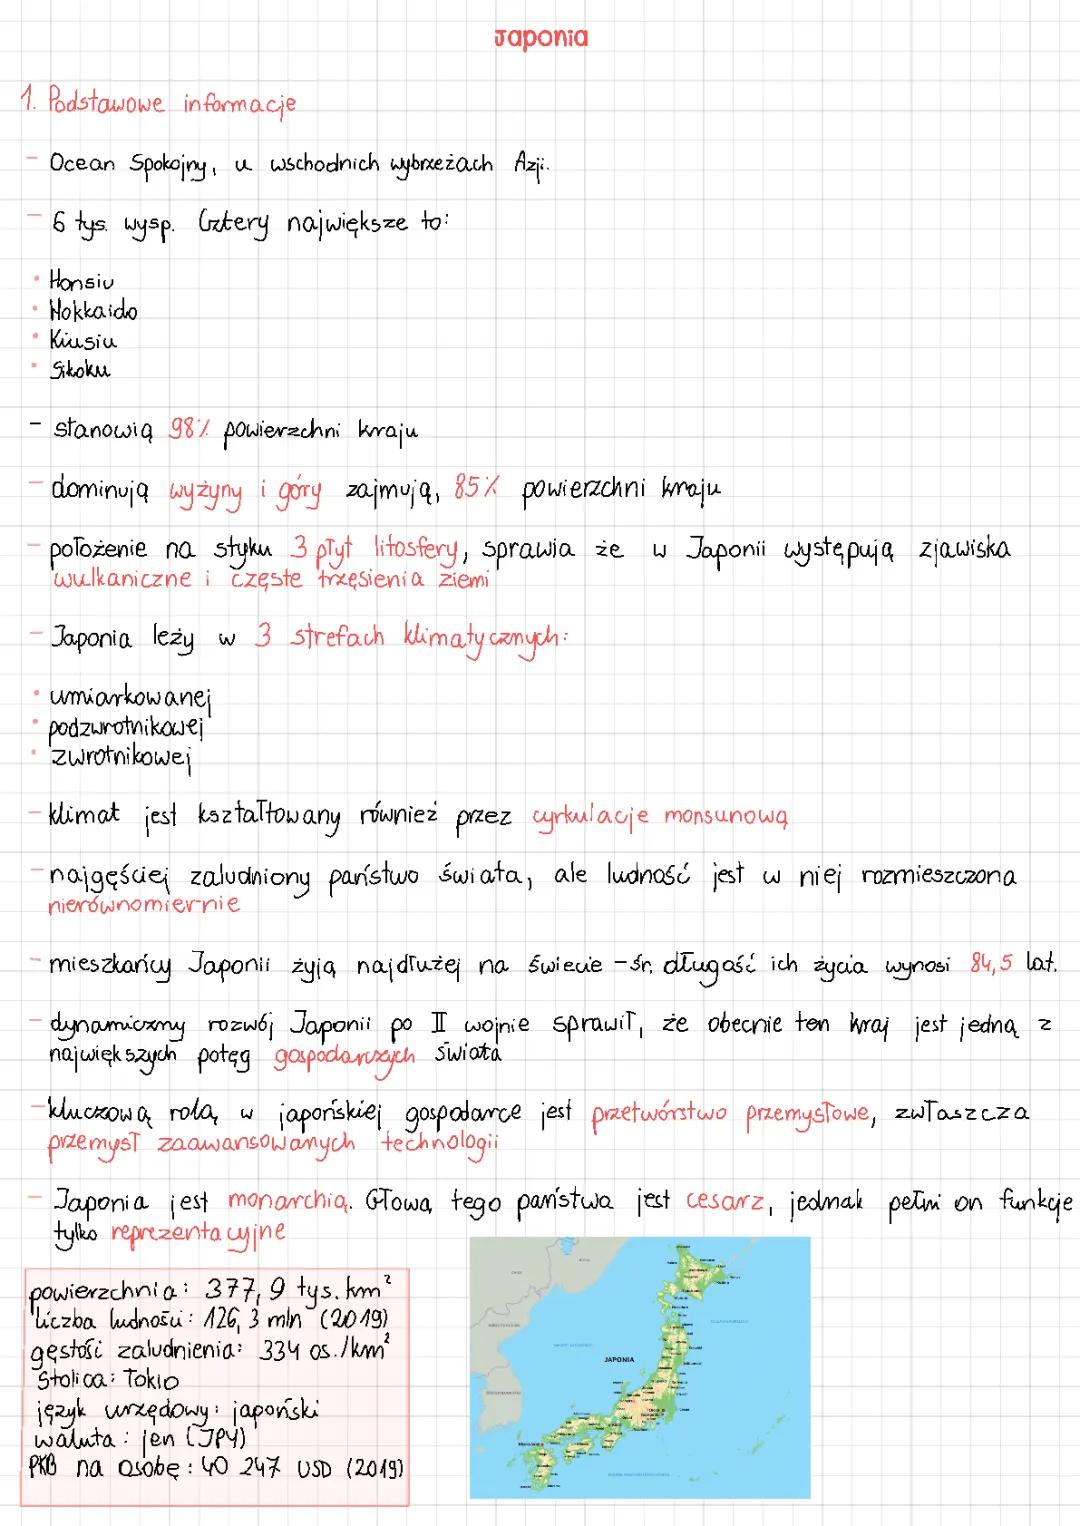 Japonia
1. Podstawowe informacje
- Ocean Spokojny, u wschodnich wybrzeżach Azji.
- 6 tys. wysp. Cztery największe to:
• Honsiu
• Hokkaido
• Kiusiu
• Sikoku
- stanowią 98% powierzchni kraju
- dominują wyżyny i góry zajmują, 85% powierzchni kraju
- położenie na styku 3 płyt litosfery, sprawia że w Japonii występują zjawiska
wulkaniczne i częste trzęsienia ziemi
- Japonia leży w 3 strefach klimatycznych:
• umiarkowanej
• podzwrotnikowej
• zwrotnikowej
- klimat jest kształtowany również przez cyrkulacje monsunową
- najgęściej zaludniony państwo świata, ale ludność jest w niej rozmieszczona
nierównomiernie
- mieszkańcy Japonii żyją najdłużej na świecie - śr. długość ich życia wynosi 84,5 lat.
- dynamiczny rozwój Japonii po II wojnie sprawił, że obecnie ten kraj jest jedną z
największych potęg gospodarczych świata
- kluczową rolą w japońskiej gospodarce jest przetwórstwo przemysłowe, zwłaszcza
przemysł zaawansowanych technologii
- Japonia jest monarchią. Głową tego państwa jest cesarz, jednak pełni on funkcje
tylko reprezentacyjne
powierzchnia: 377,9 tys. km²
liczba ludności: 126,3 mln (2019)
gęstość zaludnienia: 334 os./km²
Stolica: Tokio
język urzędowy: japoński
waluta: jen (JPY)
PKB na osobę: 40 247 USD (2019)
JAPONIA